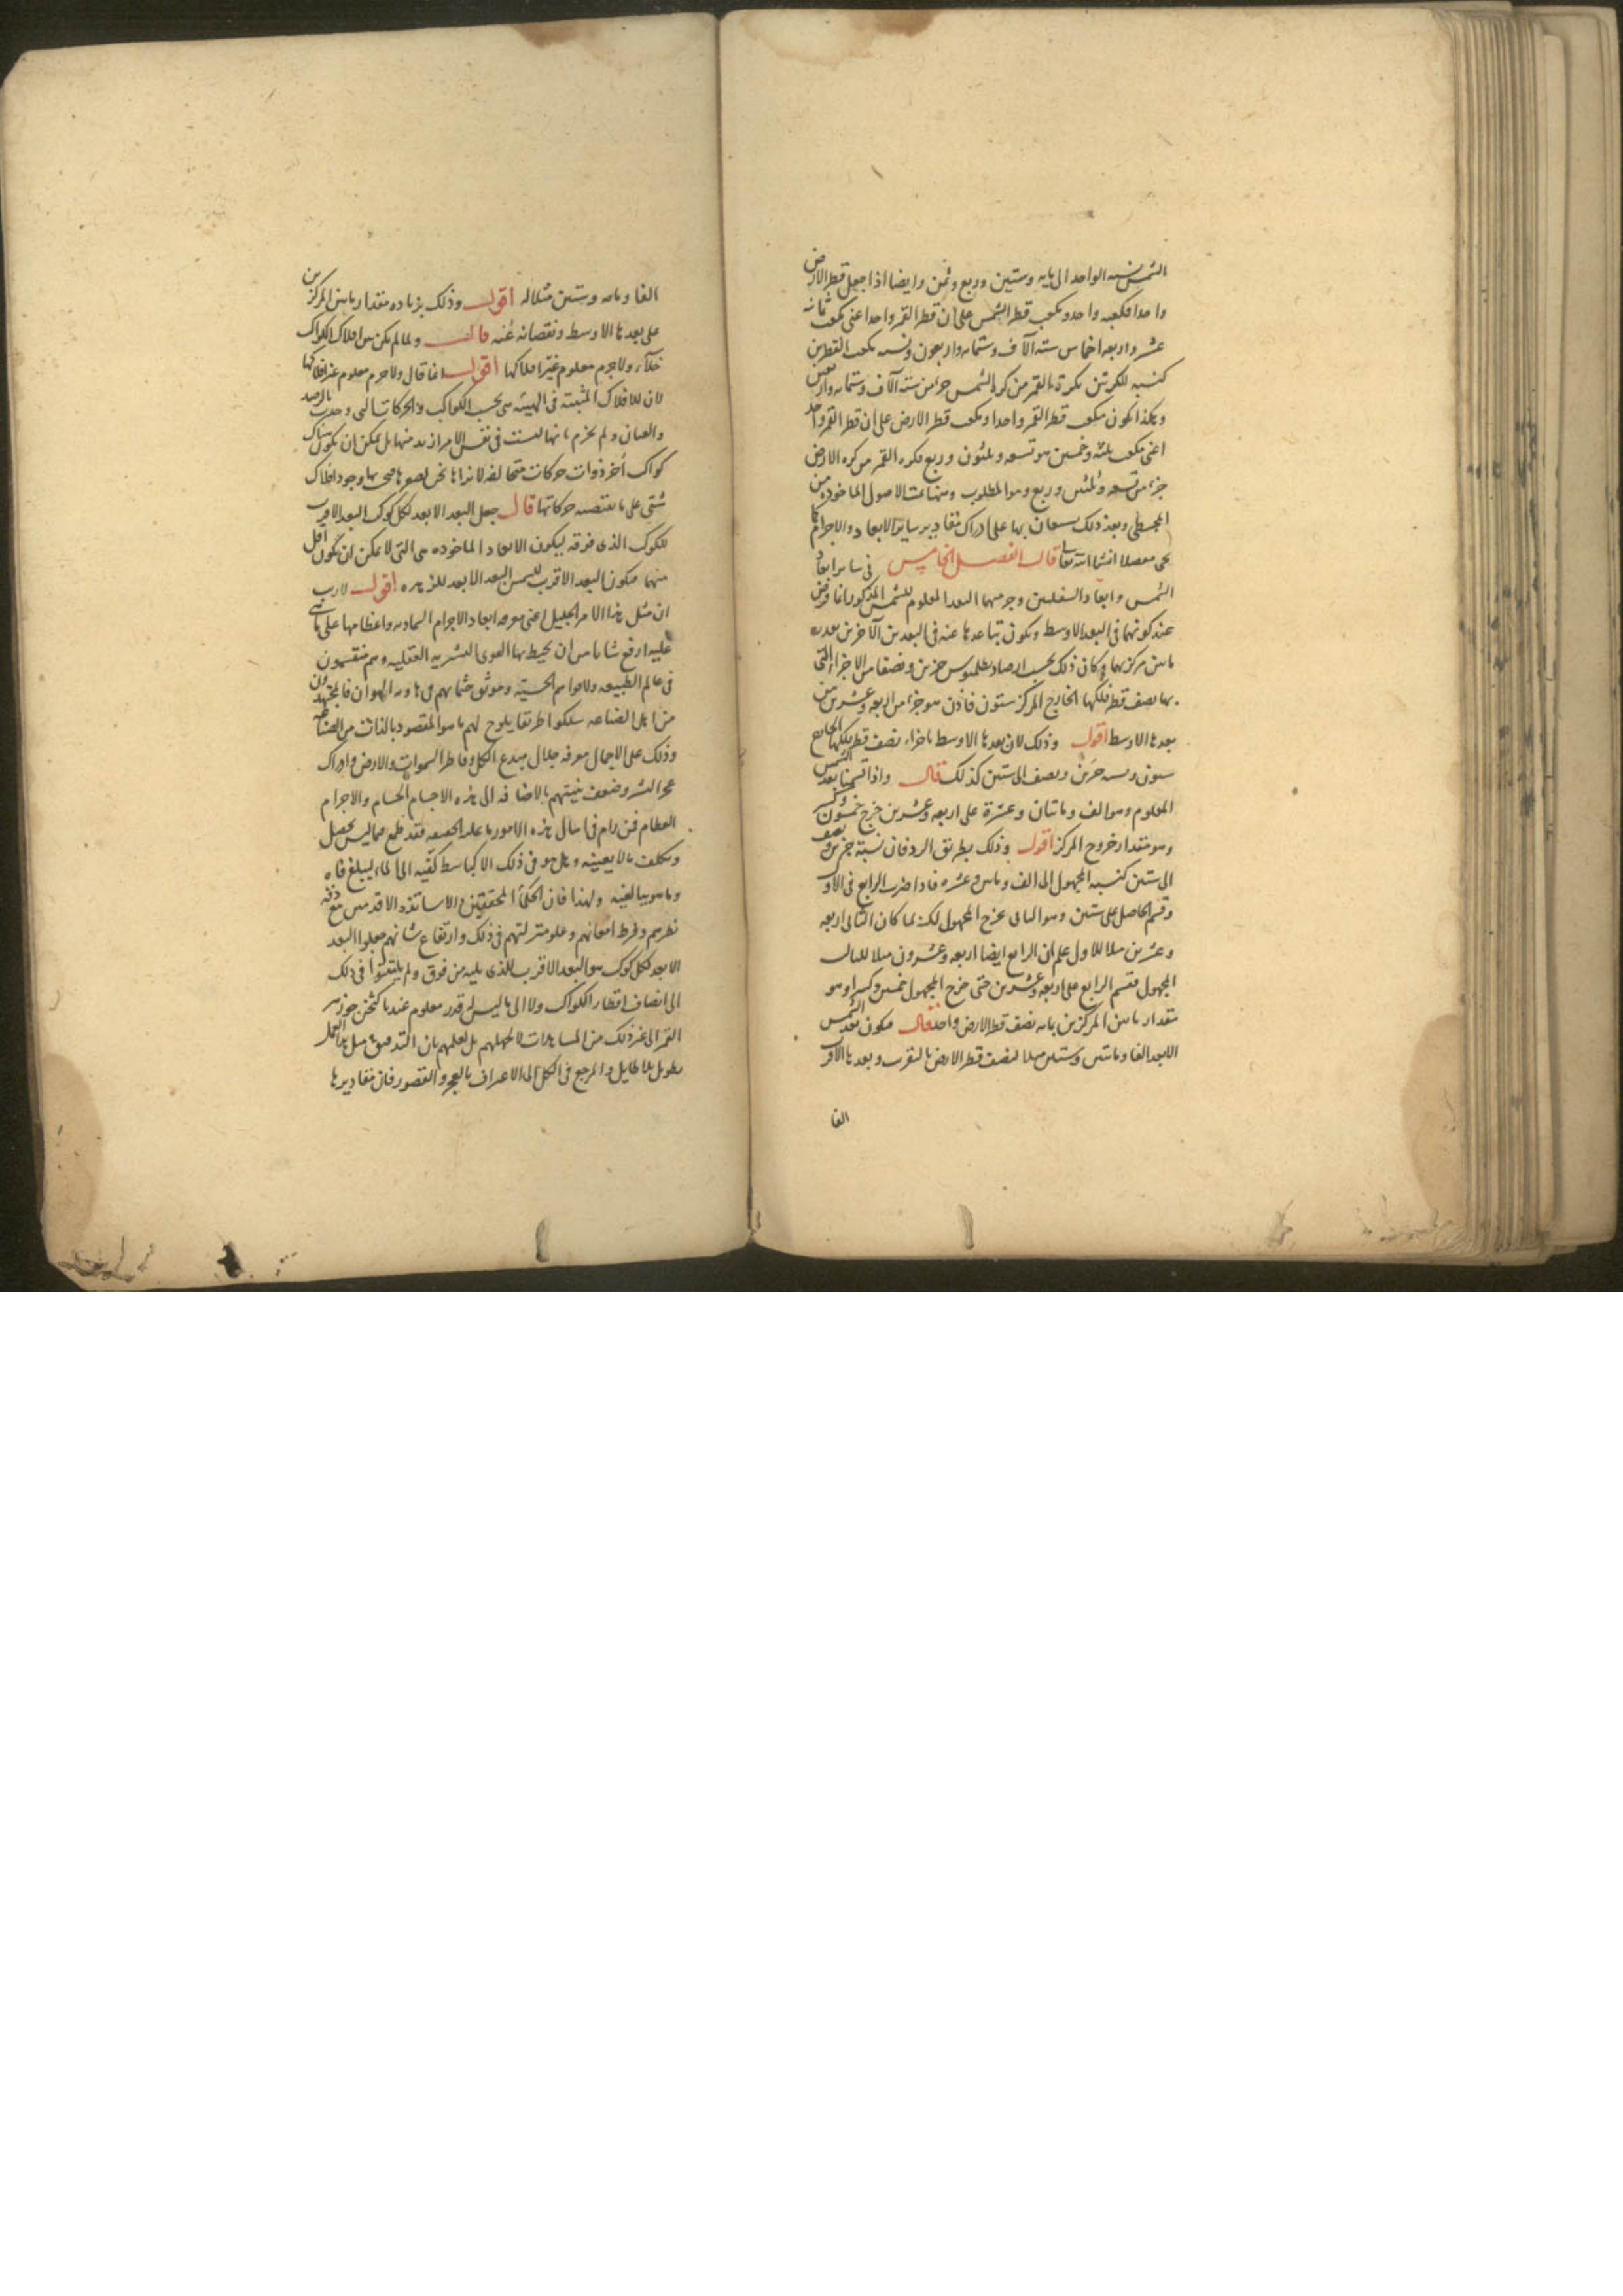 الشمس نسبه الواحد الى مايه وستين وربع وثمن وايضا اذا جعل قطر الارض
واحدا فكعبه واحد ومكعب قطر الشمس على ان قطر القمر واحد اعنى مكعب ثمانية
عشر واربعه اخماس سته آلاف وستمايه واربعون ونسبه مكعب القطرين
كنسبه الكرتين فكرة القمر من كرة الشمس جزء من سته آلاف وستمايه واربعين
وهكذا يكون مكعب قطر القمر واحدا ومكعب قطر الارض على ان قطر القمر واحد
اعنى مكعب ثلثه وخمسين هو تسعه وثلثون وربع فكره القمر من كره الارض
جزء من تسعه وثلثين وربع وهو المطلوب وههنا تمت الاصول الماخوذه من
المجسطى وبعد ذلك يستعان بها على ادراك مقادير ساير الابعاد والاجرام كما
يجى مفصلا انشا الله تعالى قال الفصل الخامس فى ساير ابعاد
الشمس وابعاد السفليين وجرميهما البعد المعلوم للشمس المذكور انما فرض
عند كونهما فى البعد الاوسط ويكون تباعدها عنه فى البعدين الآخرين بقدر
ما بين مركزيهما وكان ذلك بحسب ارصاد بطلميوس جزئين ونصفا من الاجزاء التى
بها نصف قطر فلكها الخارج المركز ستون فاذن هو جزء من اربعه وعشرين من
بعدها الاوسط اقول وذلك لان بعدها الاوسط باجزاء نصف قطر فلكها الخارج
ستون ونسبه جزئين ونصف الى ستين كذلك قال واذا قسمنا بعد الشمس
المعلوم وهو الف ومائتان وعشرة على اربعه وعشرين خرج خمسون وكسر
وهو مقدار خروج المركز اقول وذلك بطريق الرد فان نسبة جزئين ونصف
الى ستين كنسبه المجهول الى الف ومائتين وعشره فاذا ضرب الرابع فى الاول
وقسم الحاصل على ستين وهو الثانى يخرج المجهول لكنه لما كان الثانى اربعه
وعشرين مثلا للاول علم ان الرابع ايضا اربعه وعشرون مثلا للثالث
المجهول فقسم الرابع على اربعه وعشرين حتى خرج المجهول خمسين وكسرا وهو
مقدار ما بين المركزين بما به نصف قطر الارض واحد قال فيكون بعد الشمس
الابعد الفا ومائتين وستين مثلا لنصف قطر الارض بالتقريب وبعدها الاقرب
الفا
الفا ومايه وستين مثلا له اقول وذلك بزياده مقدار ما بين المركزين
على بعدها الاوسط ونقصانه عنه قال ولما لم يكن بين افلاك الكواكب
خلاء ولا جرم معلوم غير افلاكها اقول انما قال ولا جرم معلوم غير افلاكها
لان الافلاك المثبتة فى الهيئه هى بحسب الكواكب والحركات التى وجدت بالرصد
والعيان ولم يجزم بانها ليست فى نفس الامر ازيد منها بل يمكن ان يكون هناك
كواكب أخر ذوات حركات متخالفه لا نراها نحن لصغرها فيجب بها وجود افلاك
شتى على ما تقتضيه حركاتها قال جعل البعد الابعد لكل كوكب البعد الاقرب
للكوكب الذى فوقه ليكون الابعاد الماخوذه هى التى لا يمكن ان يكون اقل
منها فيكون البعد الاقرب للشمس البعد الابعد للزهره اقول لا ريب
ان مثل هذا الامر الجليل اعنى معرفه ابعاد الاجرام السماويه واعظامها على ما هى
عليه ارفع شانا من ان يحيط بها القوى البشريه العقليه وهم منغمسون
فى عالم الطبيعه ولا حواسهم الحسية وموثق جثمانهم فى هاويه الهوان فالمجتهدون
من اهل الصناعه سلكوا طريقا يلوح لهم ما هو المقصود بالذات من الصناعه
وذلك على الاجمال معرفه جلال مبدع الكل وفاطر السموات والارض وادراك
عجز البشر وضعف بنيتهم بالاضافه الى هذه الاجسام الجسام والاجرام
العظام فمن رام فى امثال هذه الامور ما عليه الحقيقه فقد طمع فيما ليس يحصل
وتكلف ما لا يعينه وهل هو فى ذلك الا كباسط كفيه الى الماء ليبلغ فاه
وما هو ببالغه ولهذا فان الحكماء المحققين والاساتذه الاقدمين مع دقه
نظرهم وفرط امعانهم وعلو منزلتهم فى ذلك وارتفاع شانهم جعلوا البعد
الابعد لكل كوكب هو البعد الاقرب للذى يليه من فوق ولم يلتفتوا فى ذلك
الى انصاف اقطار الكواكب ولا الى ما ليس له قدر معلوم عندنا كثخن جوزهر
القمر الى غير ذلك من المساهلات لا لجهلهم بل لعلمهم بان التدقيق فى مثل هذا العمل
تطويل بلا طايل والمرجع فى الكل الى الاعتراف بالعجز والقصور فان مقاديرها